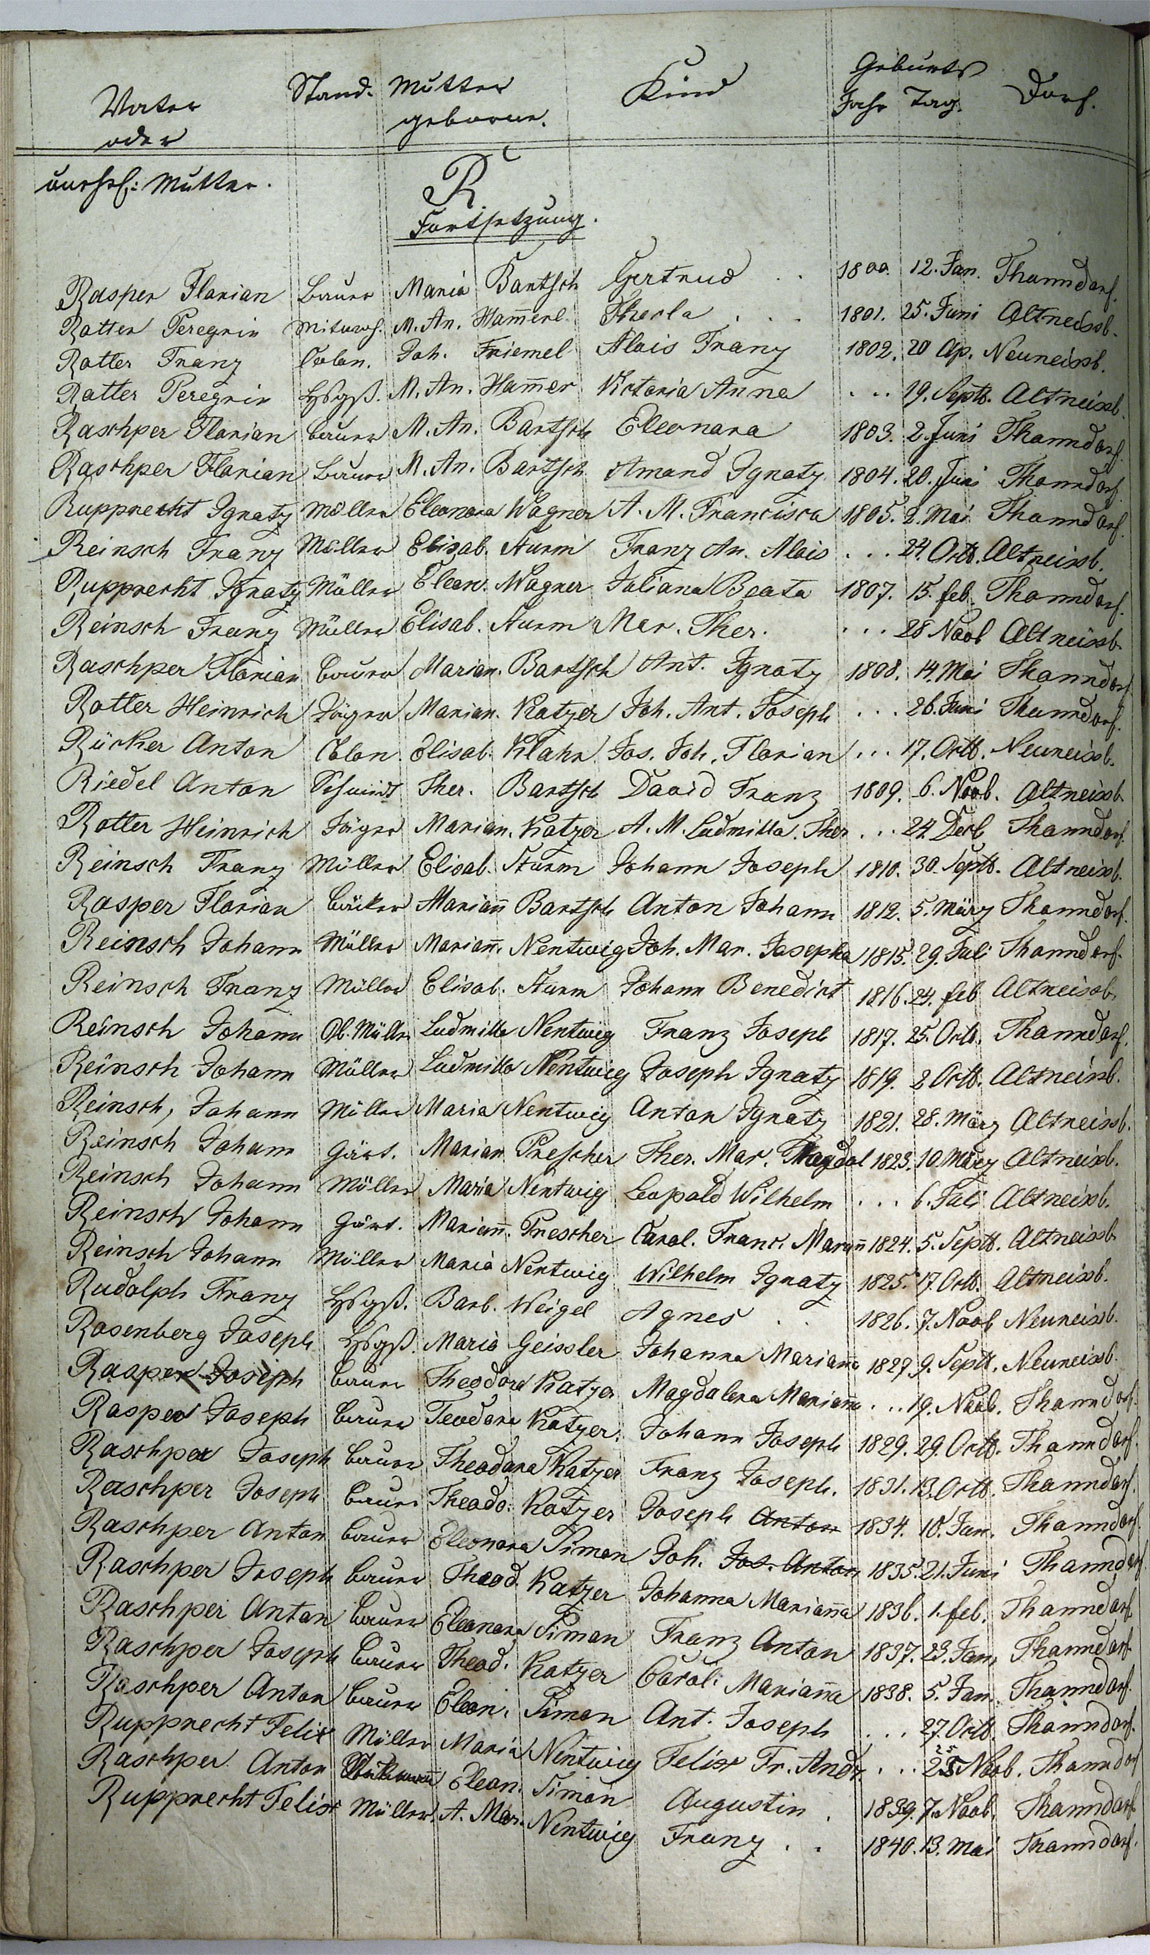 Vater Stand. Mutter Kind Geburts Dorf.
oder geborne. Jahr Tag.
unehel: Mutter.
R
Fortsetzung.
Rasper Florian Bauer Maria Bartsch Gertrud . . 1800. 12. Jan. Thanndorf.
Rotter Peregrin M. An. Ham̄erl Thecla . . . 1801. 25. Juni Altneissb.
Rotter Franz Colon. Joh. Friemel Alois Franz 1802. 20 Ap. Neuneissb.
Rotter Peregrin Hsgß. M. An. Ham̄er Viktoria Anna . . . 19. Septb. Altneissb.
Raschper Florian Bauer M. An. Bartsch Eleonara 1803. 2. Juni Thanndorf.
Raschper Florian Bauer M. An. Bartsch Amand Ignatz 1804. 20. Juni Thanndorf.
Rupprecht Ignatz Müller Eleonora Wagner A. M. Francisca 1805. 2. Mai Thanndorf.
Reinsch Franz Müller Elisab. Sturm Franz An. Alois . . . 24. Octb. Altneissb.
Rupprecht Ignatz Müller Eleon. Wagner Juliana Beata 1807. 15. feb. Thanndorf.
Reinsch Franz Müller Elisab. Sturm Mar. Ther. . . . 28 Novb Altneissb.
Raschper Florian Bauer Marian. Bartsch Ant. Ignatz 1808. 14. Mai Thanndorf.
Rotter Heinrich Jäger Marian. Katzer Joh. Ant. Joseph . . . 26. Juni Thanndorf.
Rücker Anton Colon. Elisab. Klahr Jos. Joh. Florian . . . 17. Octb. Neuneissb.
Riedel Anton Schmidt Ther. Bartsch David Franz 1809. 6. Novb. Altneissb.
Rotter Heinrich Jäger Marian. Katzer A. M. Ludmilla Ther . . . 24. Decb Thanndorf.
Reinsch Franz Müller Elisab. Sturm Johann Joseph 1810. 30. Septb. Altneissb.
Rasper Florian Bäcker Marian̄ Bartsch Anton Johann 1812. 5. März Thanndorf.
Reinsch Johann Müller Marian̄. Nentwig Joh. Mar. Josepha 1815. 29. Juli Thanndorf.
Reinsch Franz Müller Elisab. Sturm Johann Benedict 1816. 24. feb Altneissb.
Reinsch Johann Ob. Müller Ludmilla Nentwig Franz Joseph 1817. 25. Octb. Thanndorf.
Reinsch Johann Müller Ludmilla Nentwig Joseph Ignatz 1819. 2 Octb. Altneissb.
Reinsch, Johann Müller Maria Nentwig Anton Ignatz 1821. 28. März Altneissb.
Reinsch Johann Gärt. Marian Prescher Ther. Mar. Magdal 1823. 10. März Altneissb.
Reinsch Johann Müller Maria Nentwig Leopold Wilhelm . . . 6. Juli Altneissb.
Reinsch Johann Gärt. Marian̄. Prescher Carol. Franc. Marian̄ 1824. 5. Septb. Altneissb.
Reinsch Johann Müller Maria Nentwig Wilhelm Ignatz 1825. 17. Octb. Altneissb.
Rudolph Franz Hsgß. Barb. Weigel Agnes . . 1826. 7. Novb Neuneissb.
Rosenberg Joseph Hsgß. Maria Geissler Johanna Marian̄a 1827. 9. Septb. Neuneissb.
Rasper Joseph Bauer Theodora Katzer Magdalena Marian̄a . . . 19. Novb. Thanndorf.
Rasper Joseph Bauer Teodora Katzer. Johann Joseph 1829. 29. Octb. Thanndorf.
Raschper Joseph Bauer Theodora Katzer Franz Joseph. 1831. 13. Octb. Thanndorf.
Raschper Joseph Bauer Theodo. Katzer Joseph Anton 1834. 10. Jan. Thanndorf.
Raschper Anton Bauer Eleonora Simon Joh. Jos. Anton 1835. 21. Juni Thanndorf
Raschper Joseph Bauer Theod. Katzer Johanna Marian̄a 1836. 1. feb. Thanndorf.
Raschper Anton Bauer Eleonara Simon Franz Anton 1837. 23. Jan. Thanndorf.
Raschper Joseph Bauer Theod. Katzer Carol: Marian̄a 1838. 5. Jan. Thanndorf.
Raschper Anton Bauer Eleon: Simon Ant. Joseph . . . 27. Octb Thanndorf.
Rupprecht Felix Müller Maria Nentwig Felix Fr. Andr. . . . 25 Novb. Thanndorf
Raschper Anton Eleon. Simon Augustin . 1839. 7. Novb. Thanndorf.
Rupprecht Felix Müller. A. Mar. Nentwig Franz . . 1840. 13. Mai Thanndorf.